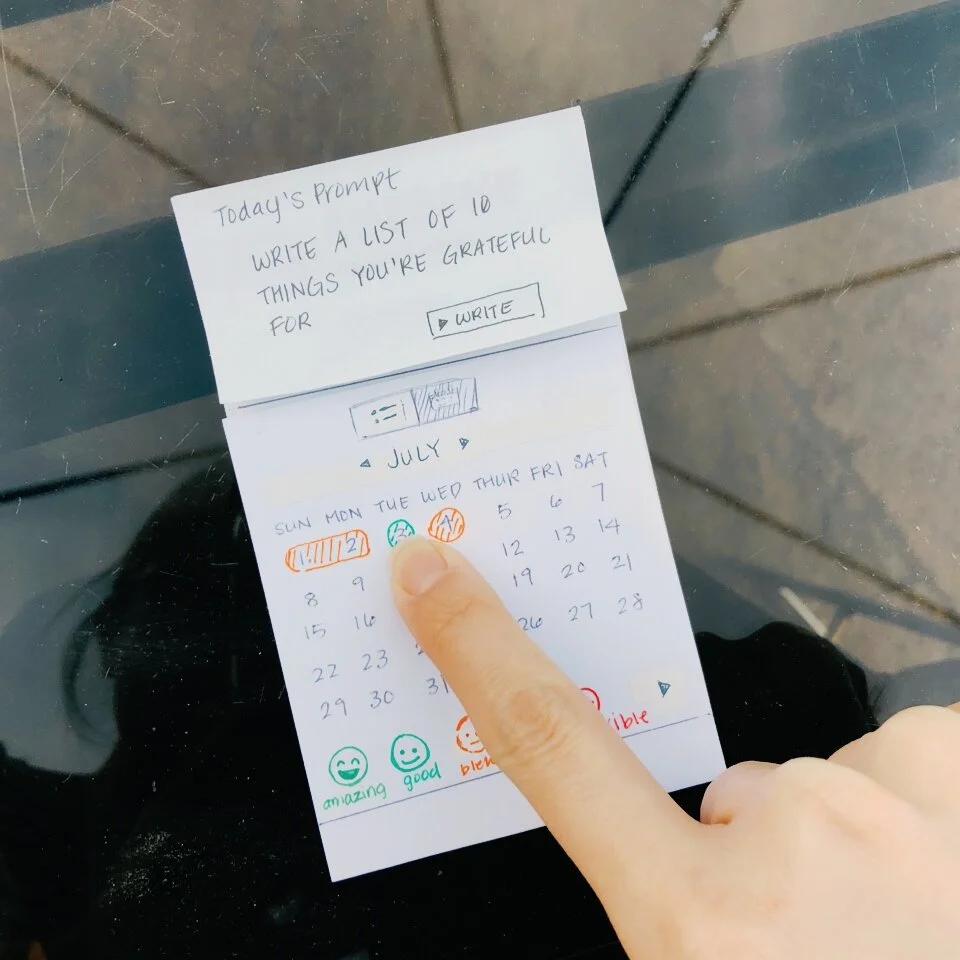 Today's Prompt
WRITE A LIST OF 10
THINGS YOU'RE GRATEFUL
FOR
WRITE
JULY
SUN MON TUE WED THUR FRI SAT
1 2 3 4 5 6 7
8 9 12 13 14
15 16 19 20 21
22 23 26 27 28
29 30 31
amazing good